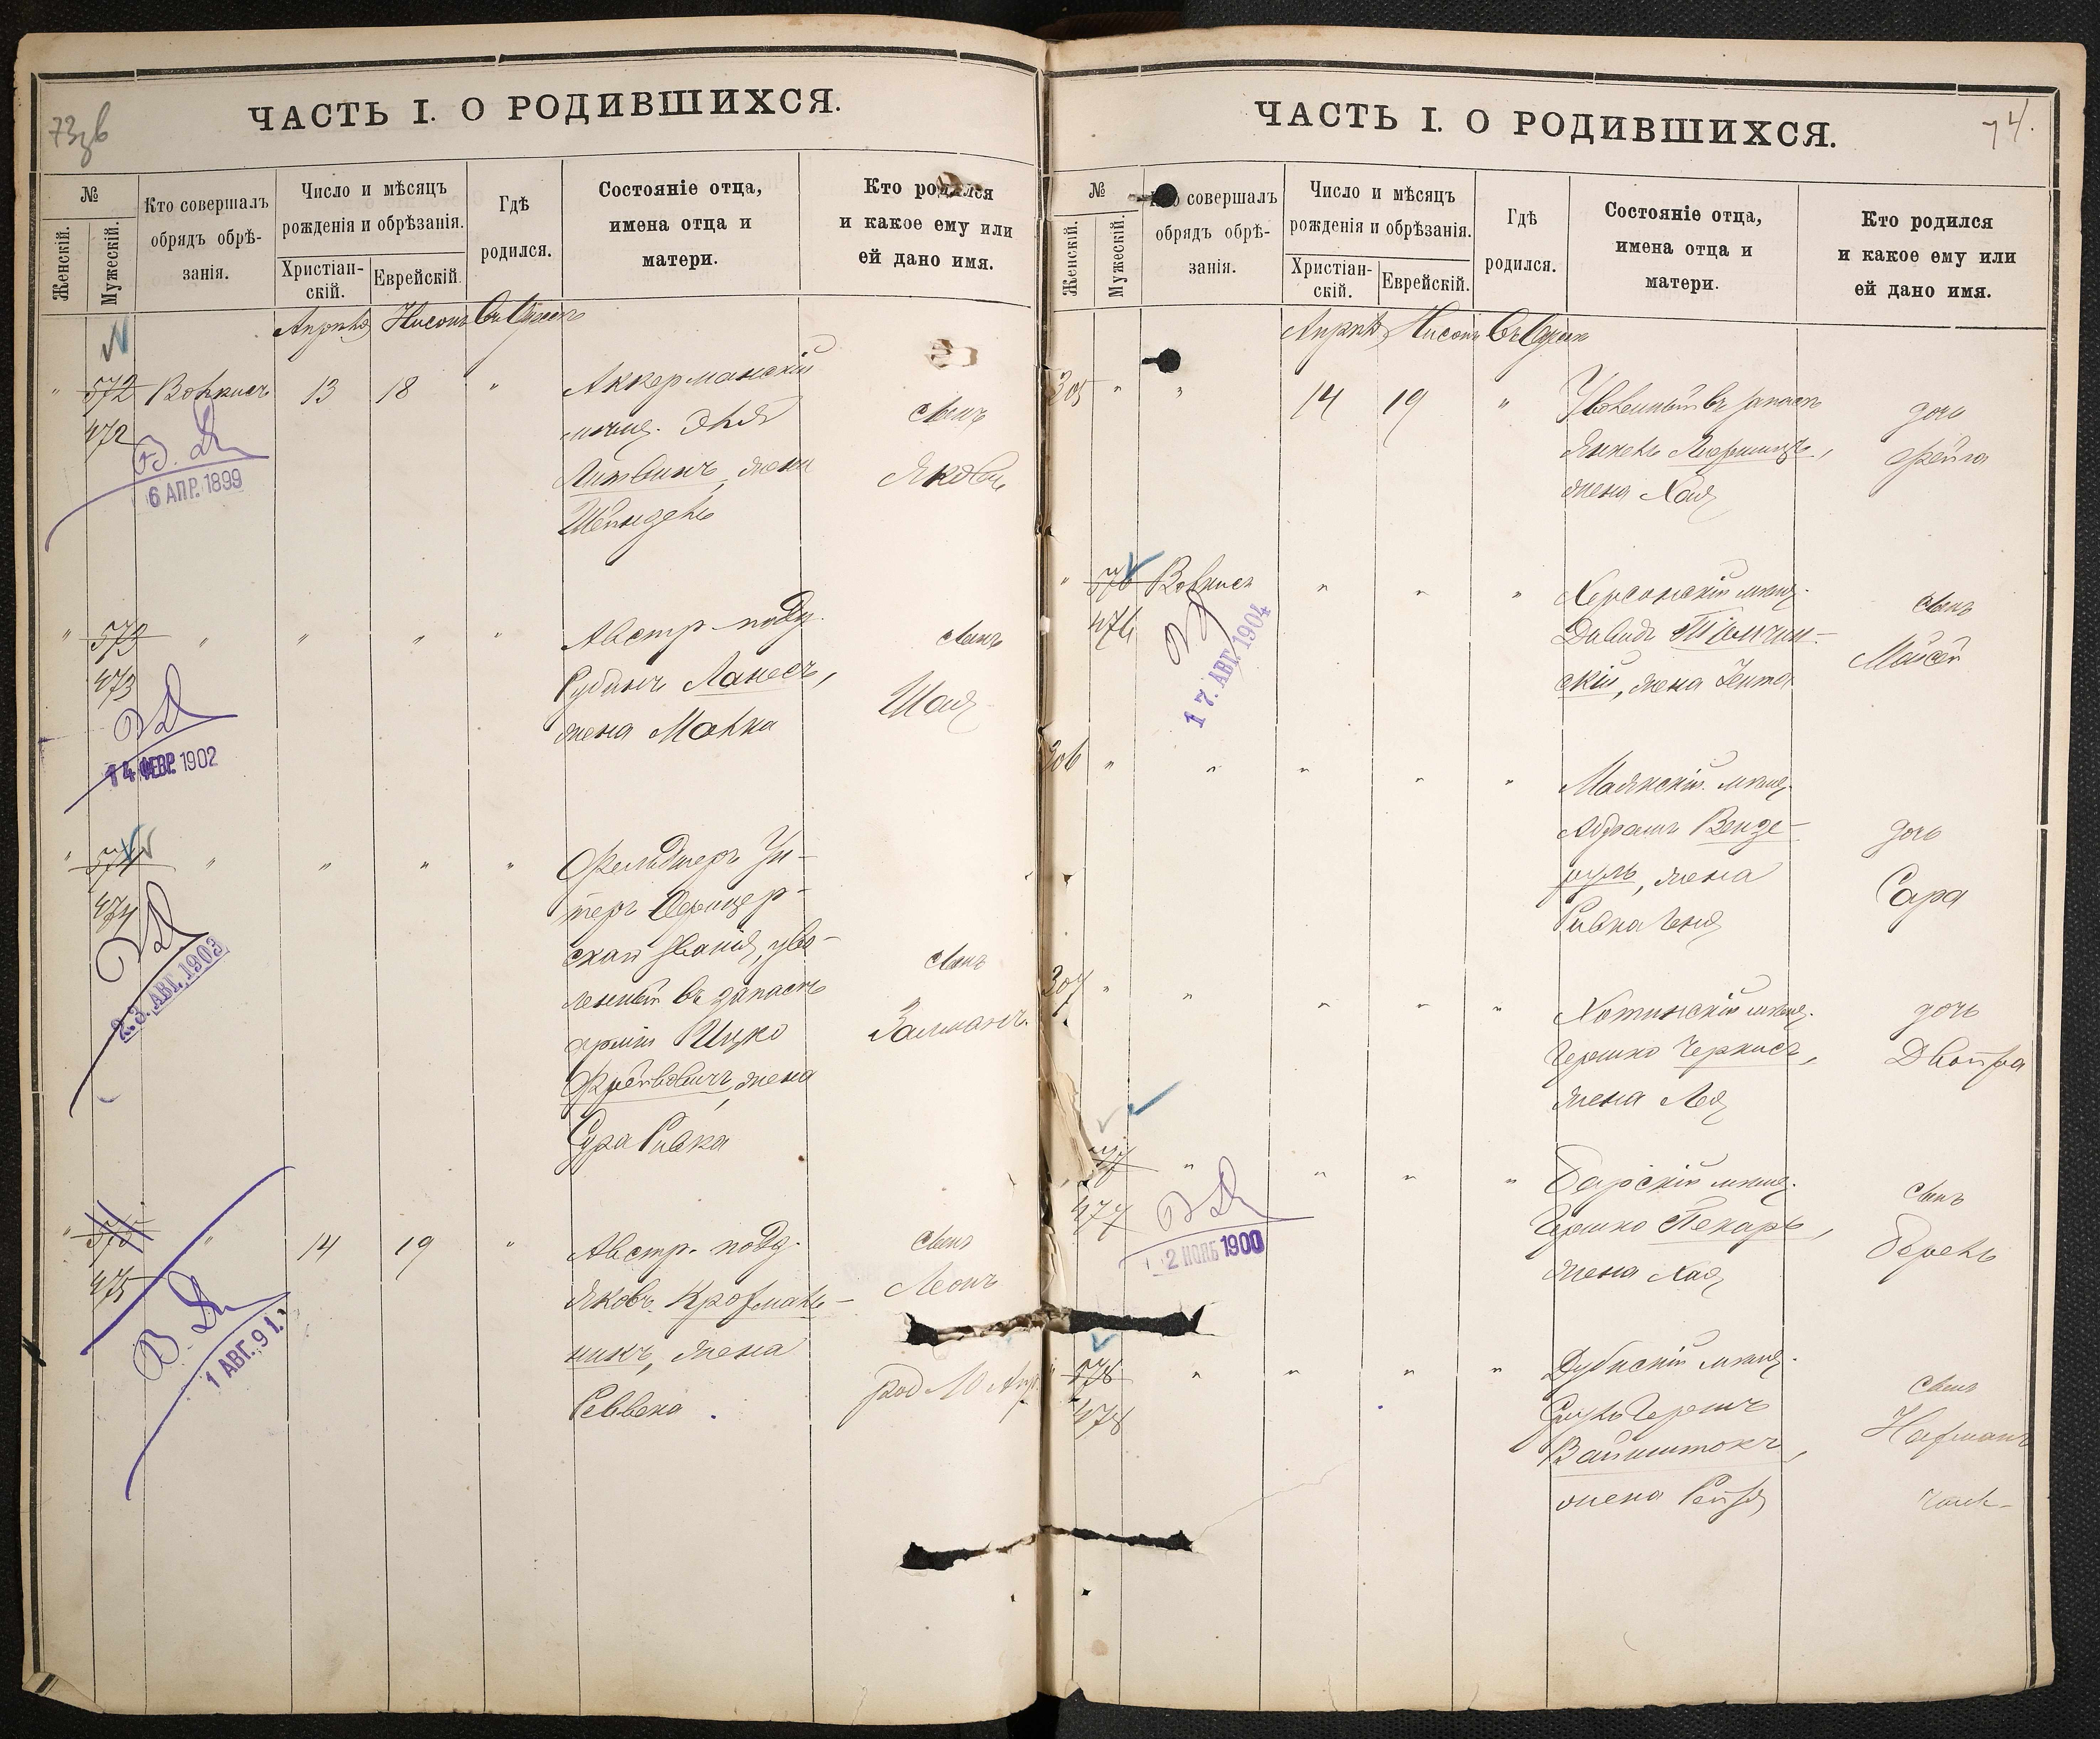 73об
ЧАСТЬ I. О РОДИВШИХСЯ.
№
Женскій.
Мужескій.
Кто совершалъ
обрядъ обрѣ-
занія.
Число и мѣсяцъ
рожденія и обрѣзанія.
Христіан-
скій.
Еврейскій.
Гдѣ
родился.
Состояніе отца,
имена отца и
матери.
Кто родился
и какое ему или
ей дано имя.
Апрѣль Нисонъ Въ Одессѣ
" 572 Волкисъ 13 18 " Аккерманскій
472
мѣщ. Элья сынъ
Литвинъ, жена Яковъ
Шейндель
6 АПР. 1899
" 573 " " " " Австр. подд. сынъ
473
Рубинъ Ланесъ, Шая
жена Малка
14 ФЕВР. 1902
" 574 " " " " Фельдшеръ Ун-
474
теръ Офицер-
скаго званія, уво-
ленный въ запасъ сынъ
арміи Ицко Залманъ
жена
Сура Ривка
23 АВГ. 1903
" 575 " 14 19 " Австр. подд. сынъ
475
Яковъ Крофмаль- Леонъ
никъ, жена
Ревека род 10 Апр.
1 АВГ. 91
74.
ЧАСТЬ I. О РОДИВШИХСЯ.
№
Женскій.
Мужескій.
Кто совершалъ
обрядъ обрѣ-
занія.
Число и мѣсяцъ
рожденія и обрѣзанія.
Христіан-
скій.
Еврейскій.
Гдѣ
родился.
Состояніе отца,
имена отца и
матери.
Кто родился
и какое ему или
ей дано имя.
Апрѣль Нисонъ Въ Одессѣ
305 " " 14 19 " Уволенный въ запасъ дочь
Янкель Фейга
жена Хая
" 576 Волкисъ " " " Херсонскій мѣщ. сынъ
476
Давидъ Тульчин- Мойсей
скій, жена Гента
17. АВГ. 1904
306 " " " " " Маякскій мѣщ.
Абрамъ Венде- дочь
руль, жена Сара
Ривка Геня
307 " " " " " Хотинскій мѣщ. дочь
Гершко Черкисъ, Двойра
жена Лея
477 " " " " Барскій мѣщ. сынъ
Гершко Пекарь, Берель
жена Хая
2 НОЯБ 1900
578 " " " " Дубнскій мѣщ. сынъ
478
Сруль Гершъ Нафманъ
Вайнштокъ,
жена Рейзя